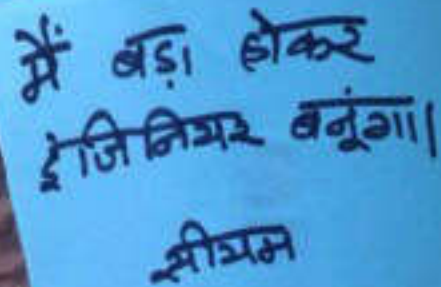 मैं बड़ा होकर
इंजिनियर बनूंगा।
सीयम